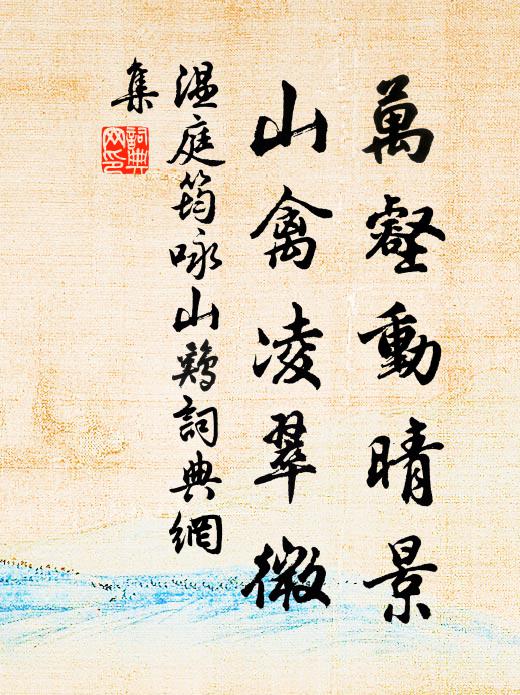 萬壑動晴景
山禽凌翠微
温庭筠咏山鷄詞典網
集
詞典
网印